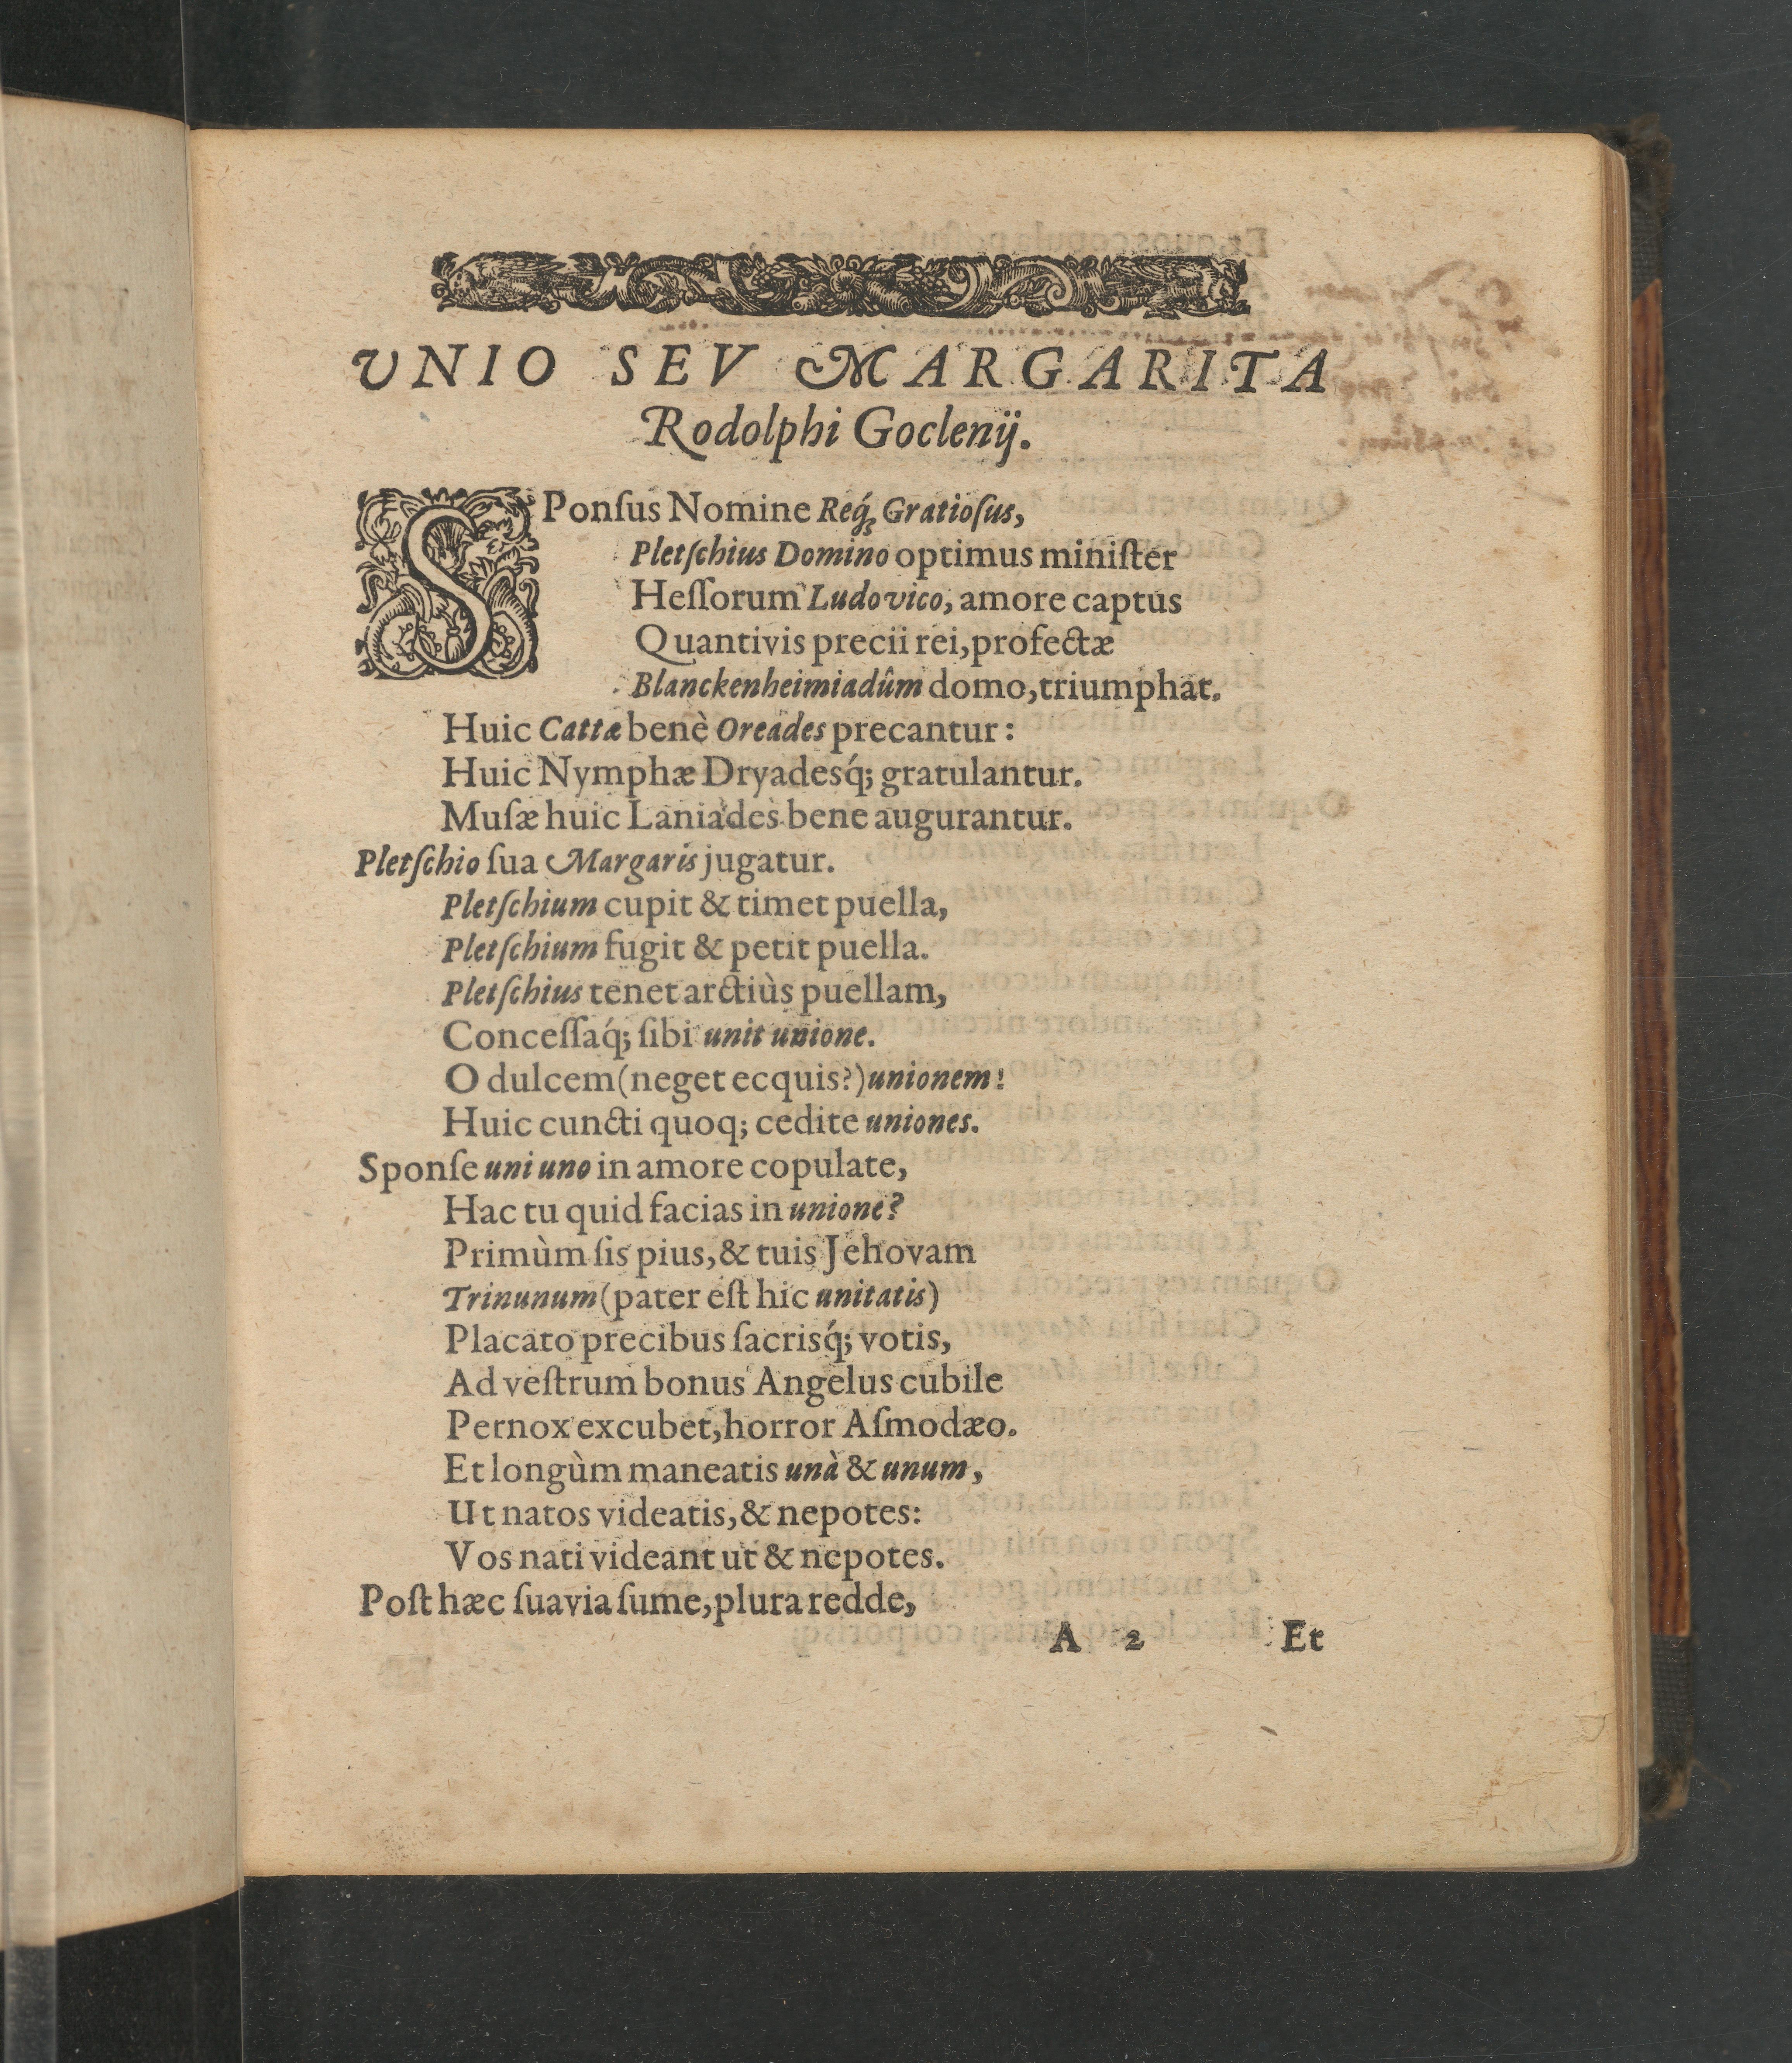 UNIO SEV MARGARITA
Rodolphi Goclenij.
SPonſus Nomine Req́; Gratioſus,
Pletſchius Domino optimus miniſter
Heſſorum Ludovico, amore captus
Quantivis precii rei, profectæ
Blanckenheimiadûm domo, triumphat.
Huic Cattæ benè Oreades precantur:
Huic Nymphæ Dryadesq́; gratulantur.
Muſæ huic Laniades bene augurantur.
Pletſchio ſua Margaris jugatur.
Pletſchium cupit & timet puella,
Pletſchium fugit & petit puella.
Pletſchius tenet arctiùs puellam,
Conceſſaq́; ſibi unit unione.
O dulcem (neget ecquis?) unionem!
Huic cuncti quoq; cedite uniones.
Sponſe uni uno in amore copulate,
Hac tu quid facias in unione?
Primùm ſis pius, & tuis Jehovam
Trinunum (pater eſt hic unitatis)
Placato precibus ſacrisq́; votis,
Ad veſtrum bonus Angelus cubile
Pernox excubet, horror Aſmodæo.
Et longùm maneatis unà & unum,
Ut natos videatis, & nepotes:
Vos nati videant ut & nepotes.
Poſt hæc ſuavia ſume, plura redde,
A 2 Et